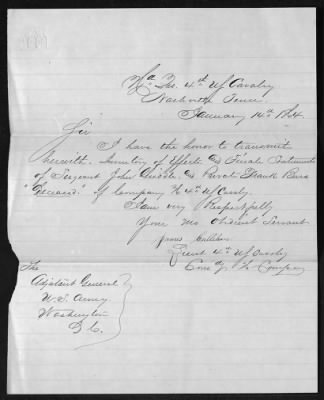 Hd. Qrs. 4th US Cavalry
Nashville Tenn.
January 14th 1864.
Sir
I have the honor to transmit
herewith Inventory of Effects and Final Statements
of Sergeant John and Private Frank
"Deceased" of Company 4th US Cavly.
I am very Respectfully
Your Mo. Obedient Servant
James Callehan
Lieut 4th US Cavalry
Comdg Company
The
Adjutant General
U.S. Army
Washington
D.C.